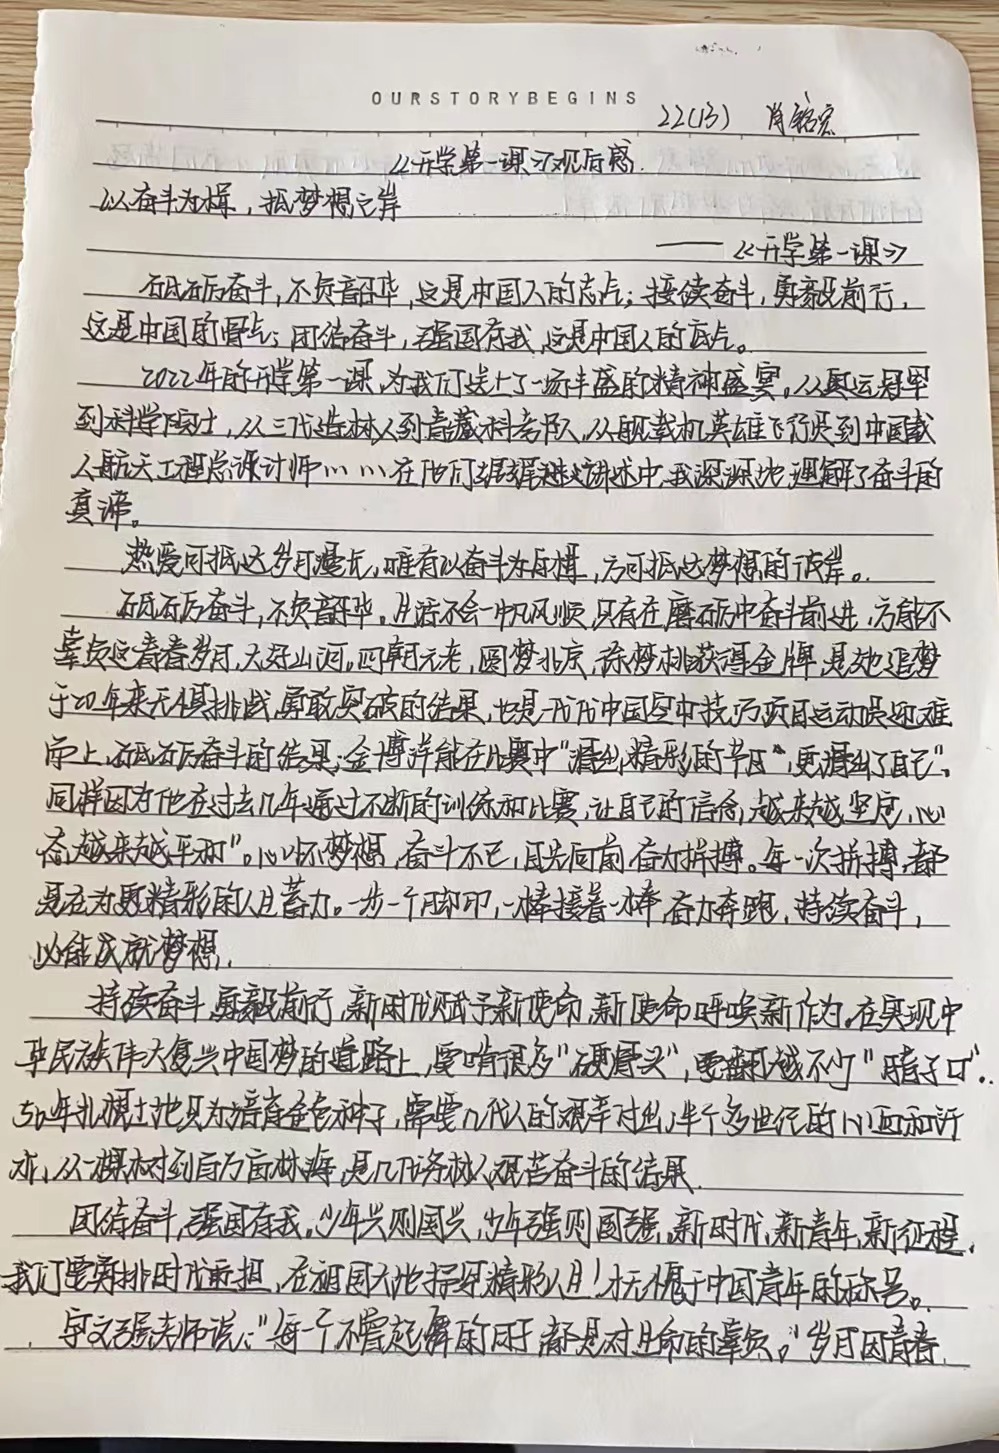 OURSTORYBEGINS
22(13) 肖铭宏
《开学第一课》观后感.
以奋斗为桨，抵梦想之岸
——《开学第一课》
砥砺奋斗,不负韶华,这是中国人的志气;接续奋斗,勇毅前行,
这是中国的骨气;团结奋斗,强国有我,这是中国人的底气。
2022年的开学第一课,为我们送上了一场丰盛的精神盛宴,从奥运冠军
到科学院士,从三代造林人到青藏科考队,从舰载机英雄飞行员到中国载
人航天工程总设计师……在他们娓娓讲述中,我深深地理解了奋斗的
真谛。
热爱可抵达岁月漫长,唯有以奋斗为舟楫,方可抵达梦想的彼岸。
砥砺奋斗,不负韶华。生活不会一帆风顺,只有在磨砺中奋斗前进,方能不
辜负这青春岁月,大好山河。四朝元老,圆梦北京,徐梦桃获得金牌,是她追梦
于20年来无惧挑战,勇敢突破的结果,也是一代代中国空中技巧项目运动员迎难
而上,砥砺奋斗的结果;金博洋能在比赛中"滑出精彩的节目","更滑出了自己",
同样因为他在过去几年通过不断的训练和比赛,让自己的信念"越来越坚定,心
态越来越平和"。心怀梦想,奋斗不已,目光向前,奋力拼搏。每一次拼搏,都
是在为更精彩的人生蓄力。一步一个脚印,一棒接着一棒,奋力奔跑,持续奋斗,
必能成就梦想.
持续奋斗,勇毅前行,新时代赋予新使命,新使命呼唤新作为。在实现中
华民族伟大复兴中国梦的道路上,要啃很多"硬骨头",要翻越不少"嗓子口"..
50年扎根土地只为培育金色种子,需要几代人的艰辛付出,半个多世纪的心血和汗
水,从一棵树到百万亩林海,是几代务林人艰苦奋斗的结果.
团结奋斗,强国有我,少年兴则国兴,少年强则国强,新时代,新青年,新征程,
我们要勇挑时代重担,在祖国大地挥写精彩人生!才无愧于中国青年的称号。
宇文强老师说:"每一个不曾起舞的日子,都是对生命的辜负。"岁月因青春